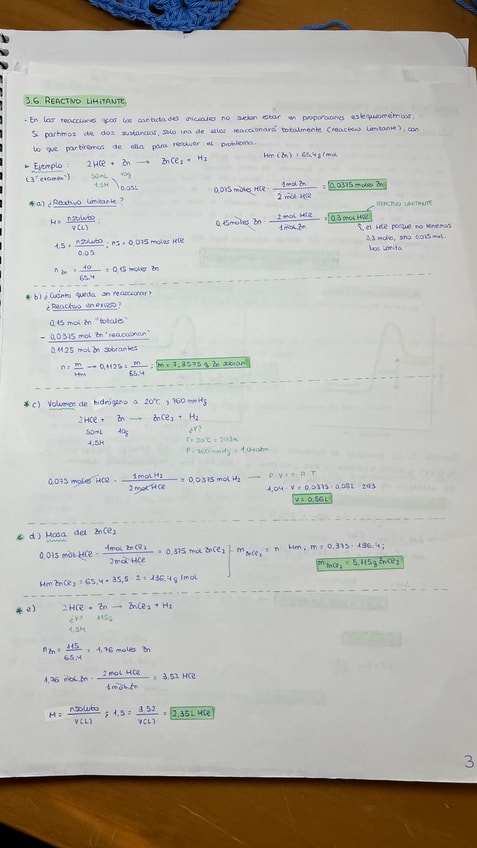 3.6. REACTIVO LIMITANTE
- En las reacciones las cantidades iniciales no suelen estar en proporciones estequiométricas.
Si partimos de dos sustancias, solo una de ellas reaccionará totalmente (reactivo limitante), con
lo que partiremos de ella para resolver el problema.
Ejemplo: 2HCl + Zn → ZnCl2 + H2 Mm (Zn) = 65,4 g/mol
(3º examen) 50mL 10g
1,5M 0,05L
0,075 moles HCl · 1mol Zn / 2 mol HCl = 0,0375 moles Zn
* a) ¿Reactivo limitante?
REACTIVO LIMITANTE
M = nsoluto / V(L);
0,15 moles Zn · 2 mol HCl / 1 mol Zn = 0,3 mol HCl
el HCl porque no tenemos
0,3 moles, sino 0,075 mol.
Nos limita
1,5 = nsoluto / 0,05; ns = 0,075 moles HCl
n Zn = 10 / 65,4 = 0,15 moles Zn
* b) ¿Cuánto queda sin reaccionar?
¿Reactivo en exceso?
0,15 mol Zn "totales"
- 0,0375 mol Zn "reaccionan"
0,1125 mol Zn sobrantes
n = m / Mm → 0,1125 = m / 65,4; m = 7,3575 g Zn sobran
* c) Volumen de hidrógeno a 20ºC y 760 mmHg
2HCl + Zn → ZnCl2 + H2
50mL 10g ¿V?
1,5M T = 20ºC = 293K
P = 760mmHg = 1,04atm
0,075 moles HCl · 1mol H2 / 2 mol HCl = 0,0375 mol H2 → P · V = n R T
1,04 · V = 0,0375 · 0,082 · 293
V = 0,86L
* d) Masa del ZnCl2
0,075 mol HCl · 1mol ZnCl2 / 2mol HCl = 0,375 mol ZnCl2 m ZnCl2 = n · Mm; m = 0,375 · 136,4;
m ZnCl2 = 5,115g ZnCl2
Mm ZnCl2 = 65,4 + 35,5 · 2 = 136,4 g/mol
* e) 2HCl + Zn → ZnCl2 + H2
¿V? 115g
1,5M
n Zn = 115 / 65,4 = 1,76 moles Zn
1,76 mol Zn · 2 mol HCl / 1 mol Zn = 3,52 HCl
M = nsoluto / V(L); 1,5 = 3,52 / V(L) = 2,35L HCl
3